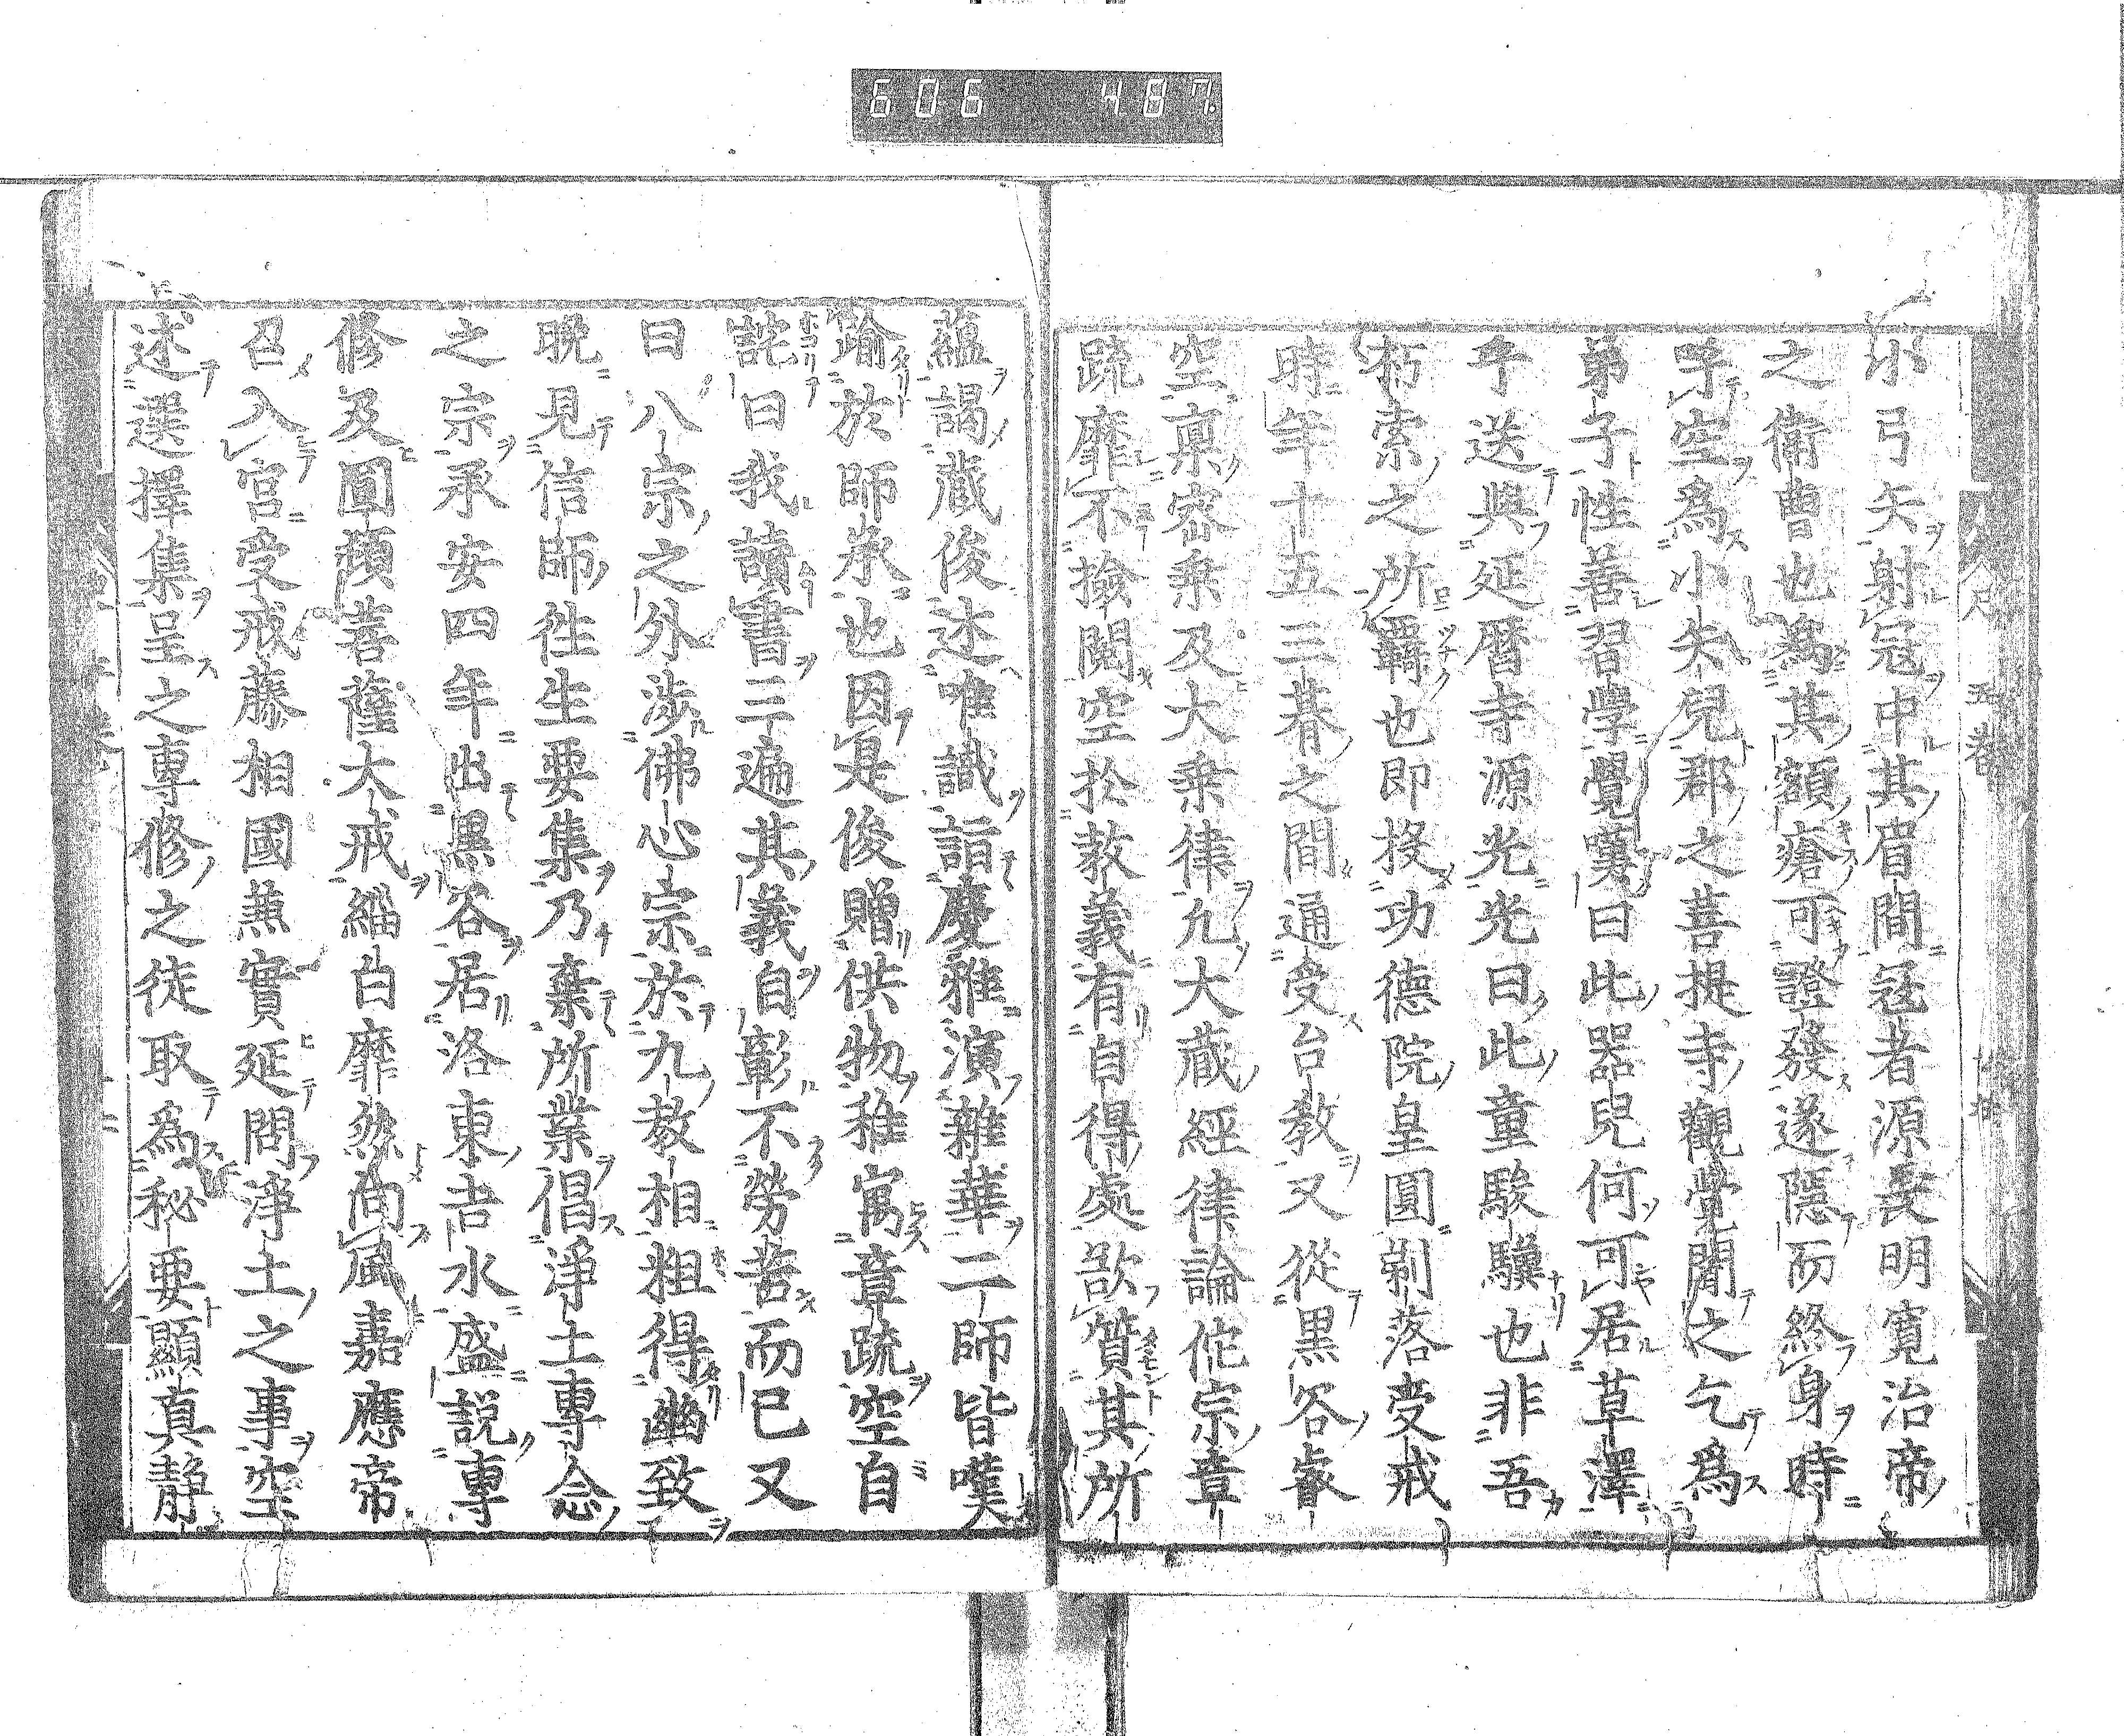 606 487
小弓矢射冦中其眉間冦者源長明寛治帝
之衛曹也為其額瘡可證發遂隱而終身時
呼空爲小矢兒郡之菩提寺觀覺聞之乞爲
弟子性善習學覺嘆曰此器兒何可居草澤
乎送與延曆寺源光光曰此童駿驥也非吾
朽索之所羈也即投功德院皇圓剃落受戒
時年十五三朞之間通受台敎又從黒谷睿
空禀密乗及大乗律凢大藏經律論佗宗章
疏靡不撿閱空於敎義有自得處欲質其所
蘊謁藏俊述唯識詣慶雅演雜華二師皆嘆
踰於師承也因是俊贈供物雅寓章疏空自
詫曰我讀書三遍其義自彰不勞苦而已又
曰八宗之外涉佛心宗於九敎相粗得幽致
晩見信師徃生要集乃棄所業倡淨土專念
之宗承安四年出黒谷居洛東吉水盛說專
修及圓頓菩薩大戒緇白靡然向風嘉應帝
召入宮受戒藤相國兼實延問淨土之事空
述選擇集呈之專修之徒取爲秘要顯真靜
五卷